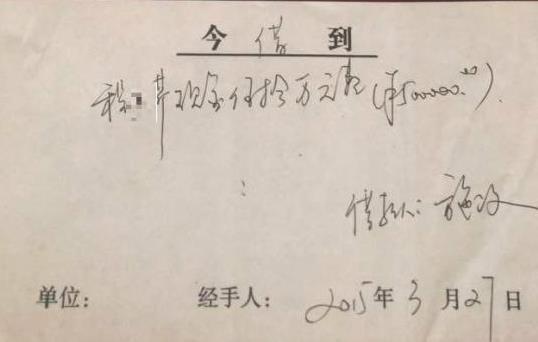 今借到
程 华现金伍拾万元整(¥500000.00).
借款人: 施
单位: 经手人: 2015年3月27日